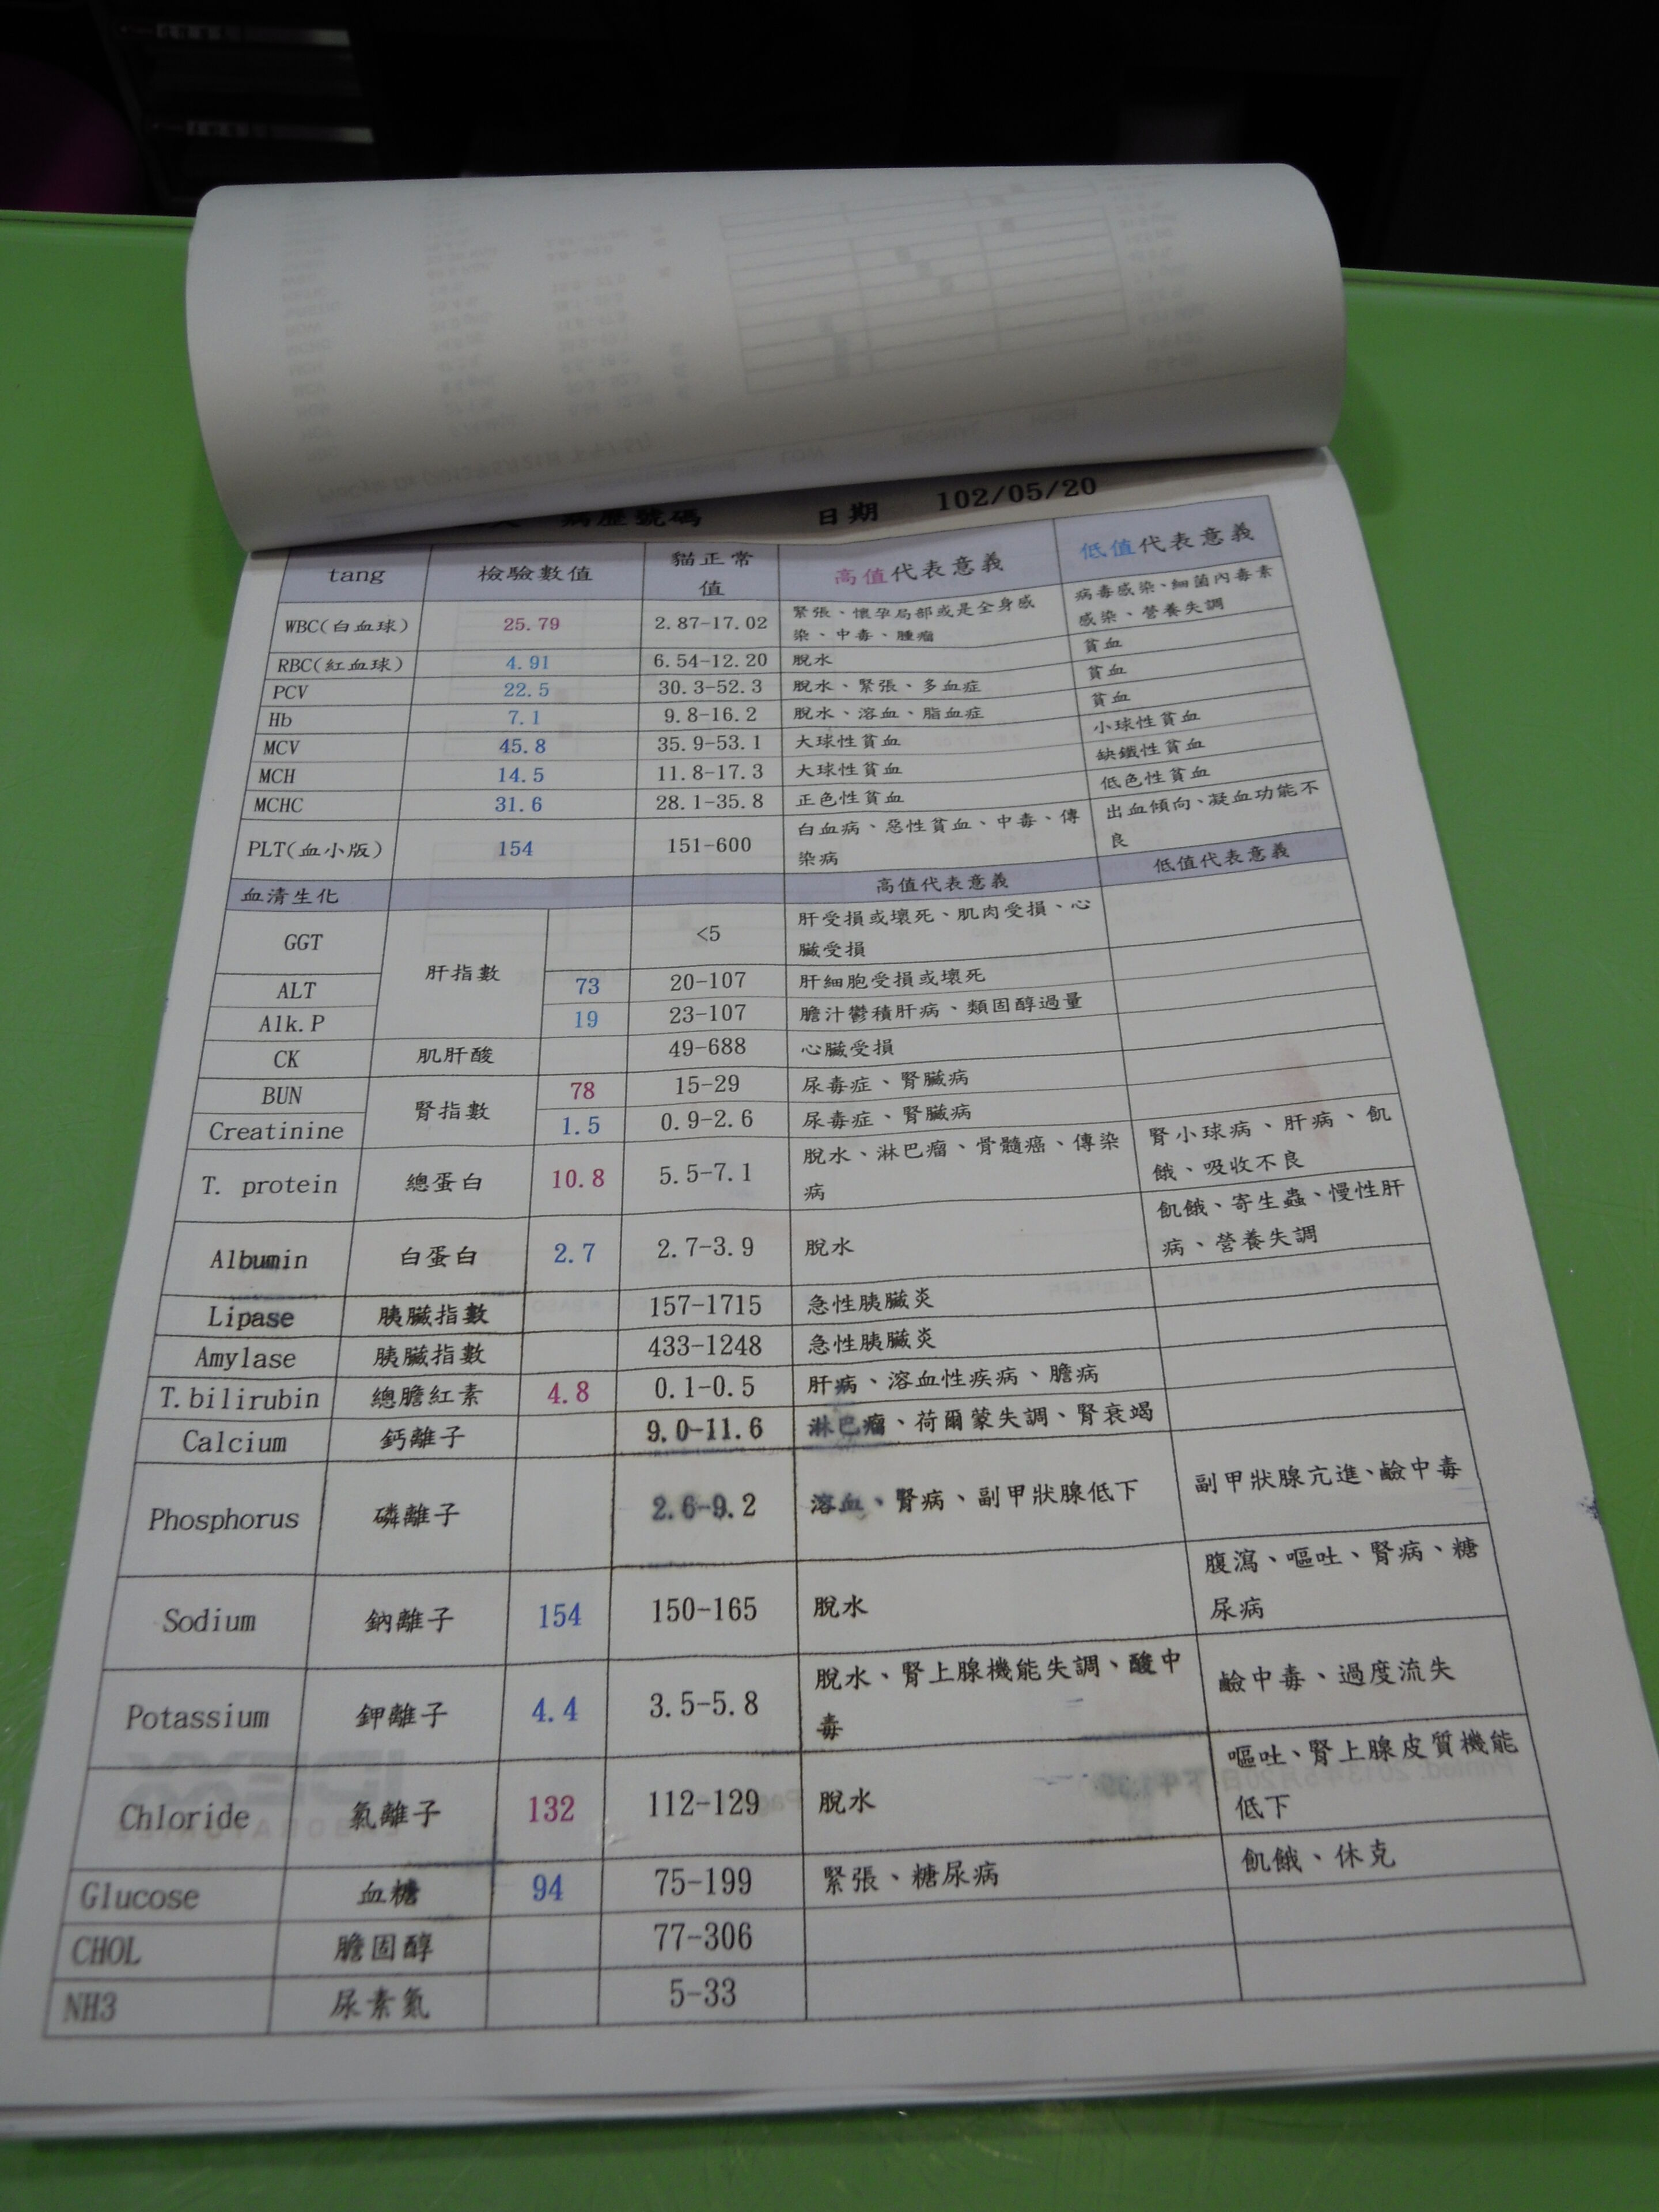 病歷號碼 日期 102/05/20
tang 檢驗數值 貓正常值 高值代表意義 低值代表意義
WBC(白血球) 25.79 2.87-17.02 緊張、懷孕局部或是全身感染、中毒、腫瘤 病毒感染、細菌內毒素感染、營養失調
RBC(紅血球) 4.91 6.54-12.20 脫水 貧血
PCV 22.5 30.3-52.3 脫水、緊張、多血症 貧血
Hb 7.1 9.8-16.2 脫水、溶血、脂血症 貧血
MCV 45.8 35.9-53.1 大球性貧血 小球性貧血
MCH 14.5 11.8-17.3 大球性貧血 缺鐵性貧血
MCHC 31.6 28.1-35.8 正色性貧血 低色性貧血
PLT(血小版) 154 151-600 白血病、惡性貧血、中毒、傳染病 出血傾向、凝血功能不良
血清生化 高值代表意義 低值代表意義
GGT 肝指數 <5 肝受損或壞死、肌肉受損、心臟受損
ALT 73 20-107 肝細胞受損或壞死
Alk.P 19 23-107 膽汁鬱積肝病、類固醇過量
CK 肌肝酸 49-688 心臟受損
BUN 腎指數 78 15-29 尿毒症、腎臟病
Creatinine 1.5 0.9-2.6 尿毒症、腎臟病
T. protein 總蛋白 10.8 5.5-7.1 脫水、淋巴瘤、骨髓癌、傳染病 腎小球病、肝病、飢餓、吸收不良
Albumin 白蛋白 2.7 2.7-3.9 脫水 飢餓、寄生蟲、慢性肝病、營養失調
Lipase 胰臟指數 157-1715 急性胰臟炎
Amylase 胰臟指數 433-1248 急性胰臟炎
T.bilirubin 總膽紅素 4.8 0.1-0.5 肝病、溶血性疾病、膽病
Calcium 鈣離子 9.0-11.6 淋巴瘤、荷爾蒙失調、腎衰竭
Phosphorus 磷離子 2.6-9.2 溶血、腎病、副甲狀腺低下 副甲狀腺亢進、鹼中毒
Sodium 鈉離子 154 150-165 脫水 腹瀉、嘔吐、腎病、糖尿病
Potassium 鉀離子 4.4 3.5-5.8 脫水、腎上腺機能失調、酸中毒 鹼中毒、過度流失
Chloride 氯離子 132 112-129 脫水 嘔吐、腎上腺皮質機能低下
Glucose 血糖 94 75-199 緊張、糖尿病 飢餓、休克
CHOL 膽固醇 77-306
NH3 尿素氮 5-33